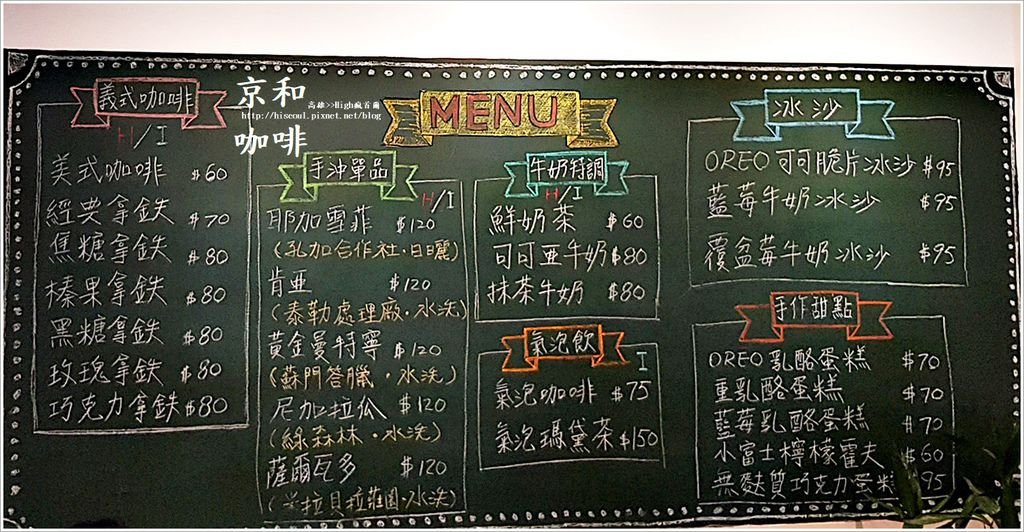 義式咖啡
H/I
美式咖啡 $60
經典拿鉄 $70
焦糖拿鉄 $80
榛果拿鉄 $80
黑糖拿鉄 $80
玫瑰拿鉄 $80
巧克力拿鉄 $80
京和
咖啡
高雄>>High瘋首爾
http://hiseoul.pixnet.net/blog
MENU
手沖單品
H/I
耶加雪菲 $120
(孔加合作社·日曬)
肯亞 $120
(泰勒處理廠·水洗)
黃金曼特寧 $120
(蘇門答臘·水洗)
尼加拉瓜 $120
(綠森林·水洗)
薩爾瓦多 $120
拉貝拉莊園·水洗)
牛奶特調
H/I
鮮奶茶 $60
可可亞牛奶 $80
抹茶牛奶 $80
氣泡飲
I
氣泡咖啡 $75
氣泡瑪黛茶 $150
冰沙
OREO可可脆片冰沙 $95
藍莓牛奶冰沙 $95
覆盆莓牛奶冰沙 $95
手作甜點
OREO乳酪蛋糕 $70
重乳酪蛋糕 $70
藍莓乳酪蛋糕 $70
小富士檸檬霍夫 $60
無麩質巧克力蛋糕 $95